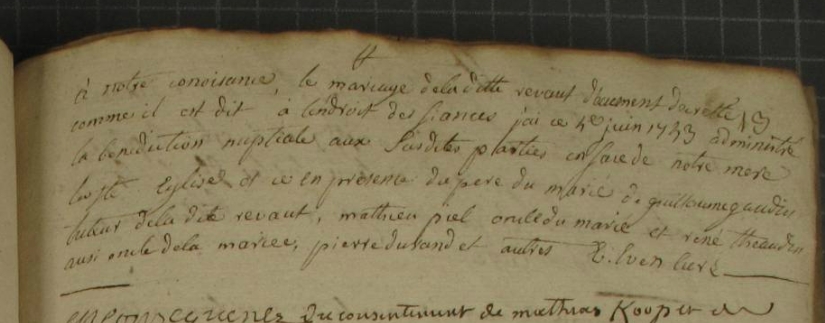 à notre conoisance, le mariage dela ditte revaut duement decretté 13
comme il est dit à lendroit des fiances j'ai ce 4e juin 1753 administré
la benediction nuptiale aux susdites parties en face de notre mere
la ste Eglise et ce en presence du pere du marié de guillaume gaudin
tuteur dela dite revaut, mathieu piel oncle du marié et rené theaudin
ausi oncle dela mariee, pierre durand et autres Y. Even curé
En consequence du consentement de mathias